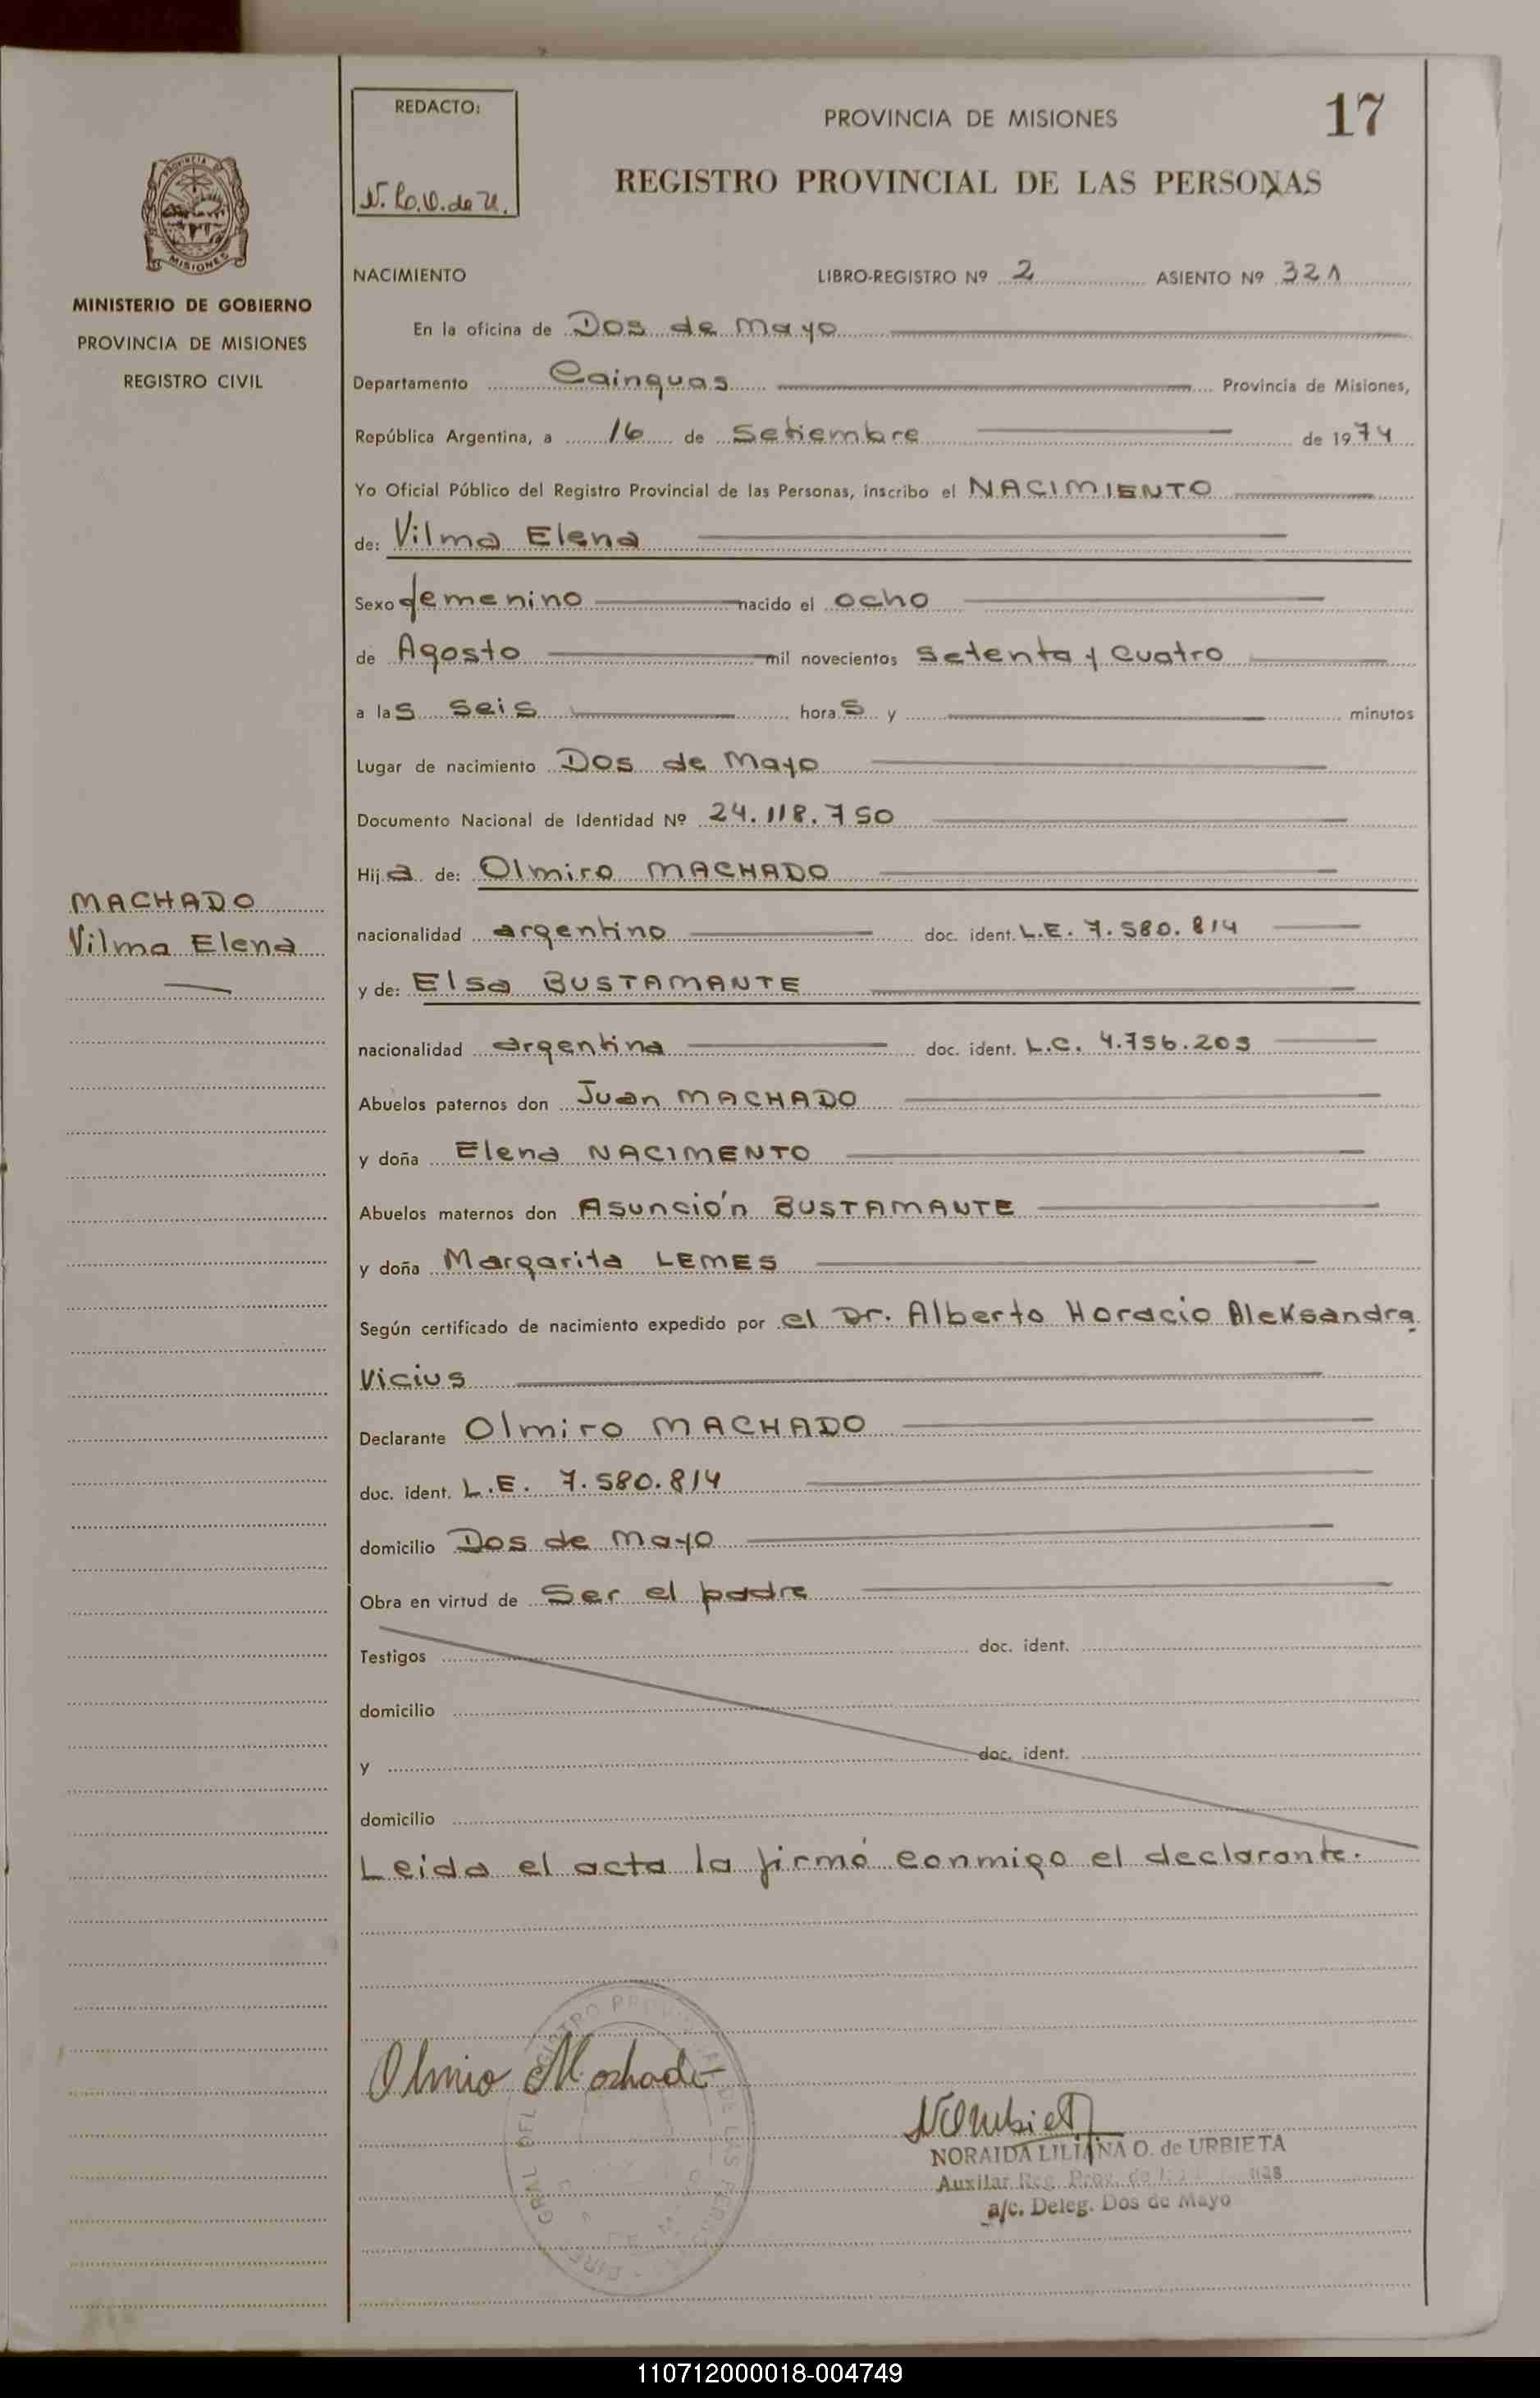 REDACTO:
N. L. O. de U.
PROVINCIA DE MISIONES
17
REGISTRO PROVINCIAL DE LAS PERSONAS
PROVINCIA DE
MISIONES
MINISTERIO DE GOBIERNO
PROVINCIA DE MISIONES
REGISTRO CIVIL
NACIMIENTO LIBRO-REGISTRO Nº 2 ASIENTO Nº 321
En la oficina de Dos de Mayo
Departamento Cainguas Provincia de Misiones,
República Argentina, a 16 de Setiembre de 1974
Yo Oficial Público del Registro Provincial de las Personas, inscribo el NACIMIENTO
de: Vilma Elena
Sexo femenino nacido el ocho
de Agosto mil novecientos setenta y cuatro
a las seis horas y minutos
Lugar de nacimiento Dos de Mayo
Documento Nacional de Identidad Nº 24.118.750
Hija de: Olmiro MACHADO
MACHADO
Vilma Elena
nacionalidad argentino doc. ident. L.E. 7.580.814
y de: Elsa BUSTAMANTE
nacionalidad argentina doc. ident. L.C. 4.756.203
Abuelos paternos don Juan MACHADO
y doña Elena NACIMENTO
Abuelos maternos don Asunción BUSTAMANTE
y doña Margarita LEMES
Según certificado de nacimiento expedido por el Dr. Alberto Horacio Aleksandra
Vicius
Declarante Olmiro MACHADO
doc. ident. L.E. 7.580.814
domicilio Dos de Mayo
Obra en virtud de Ser el padre
Testigos doc. ident.
domicilio
y doc. ident.
domicilio
Leida el acta la firmó conmigo el declarante.
Olmiro Machado
NORAIDA LILIANA O. de URBIETA
Auxiliar Reg. Prov. de
a/c. Deleg. Dos de Mayo
110712000018-004749